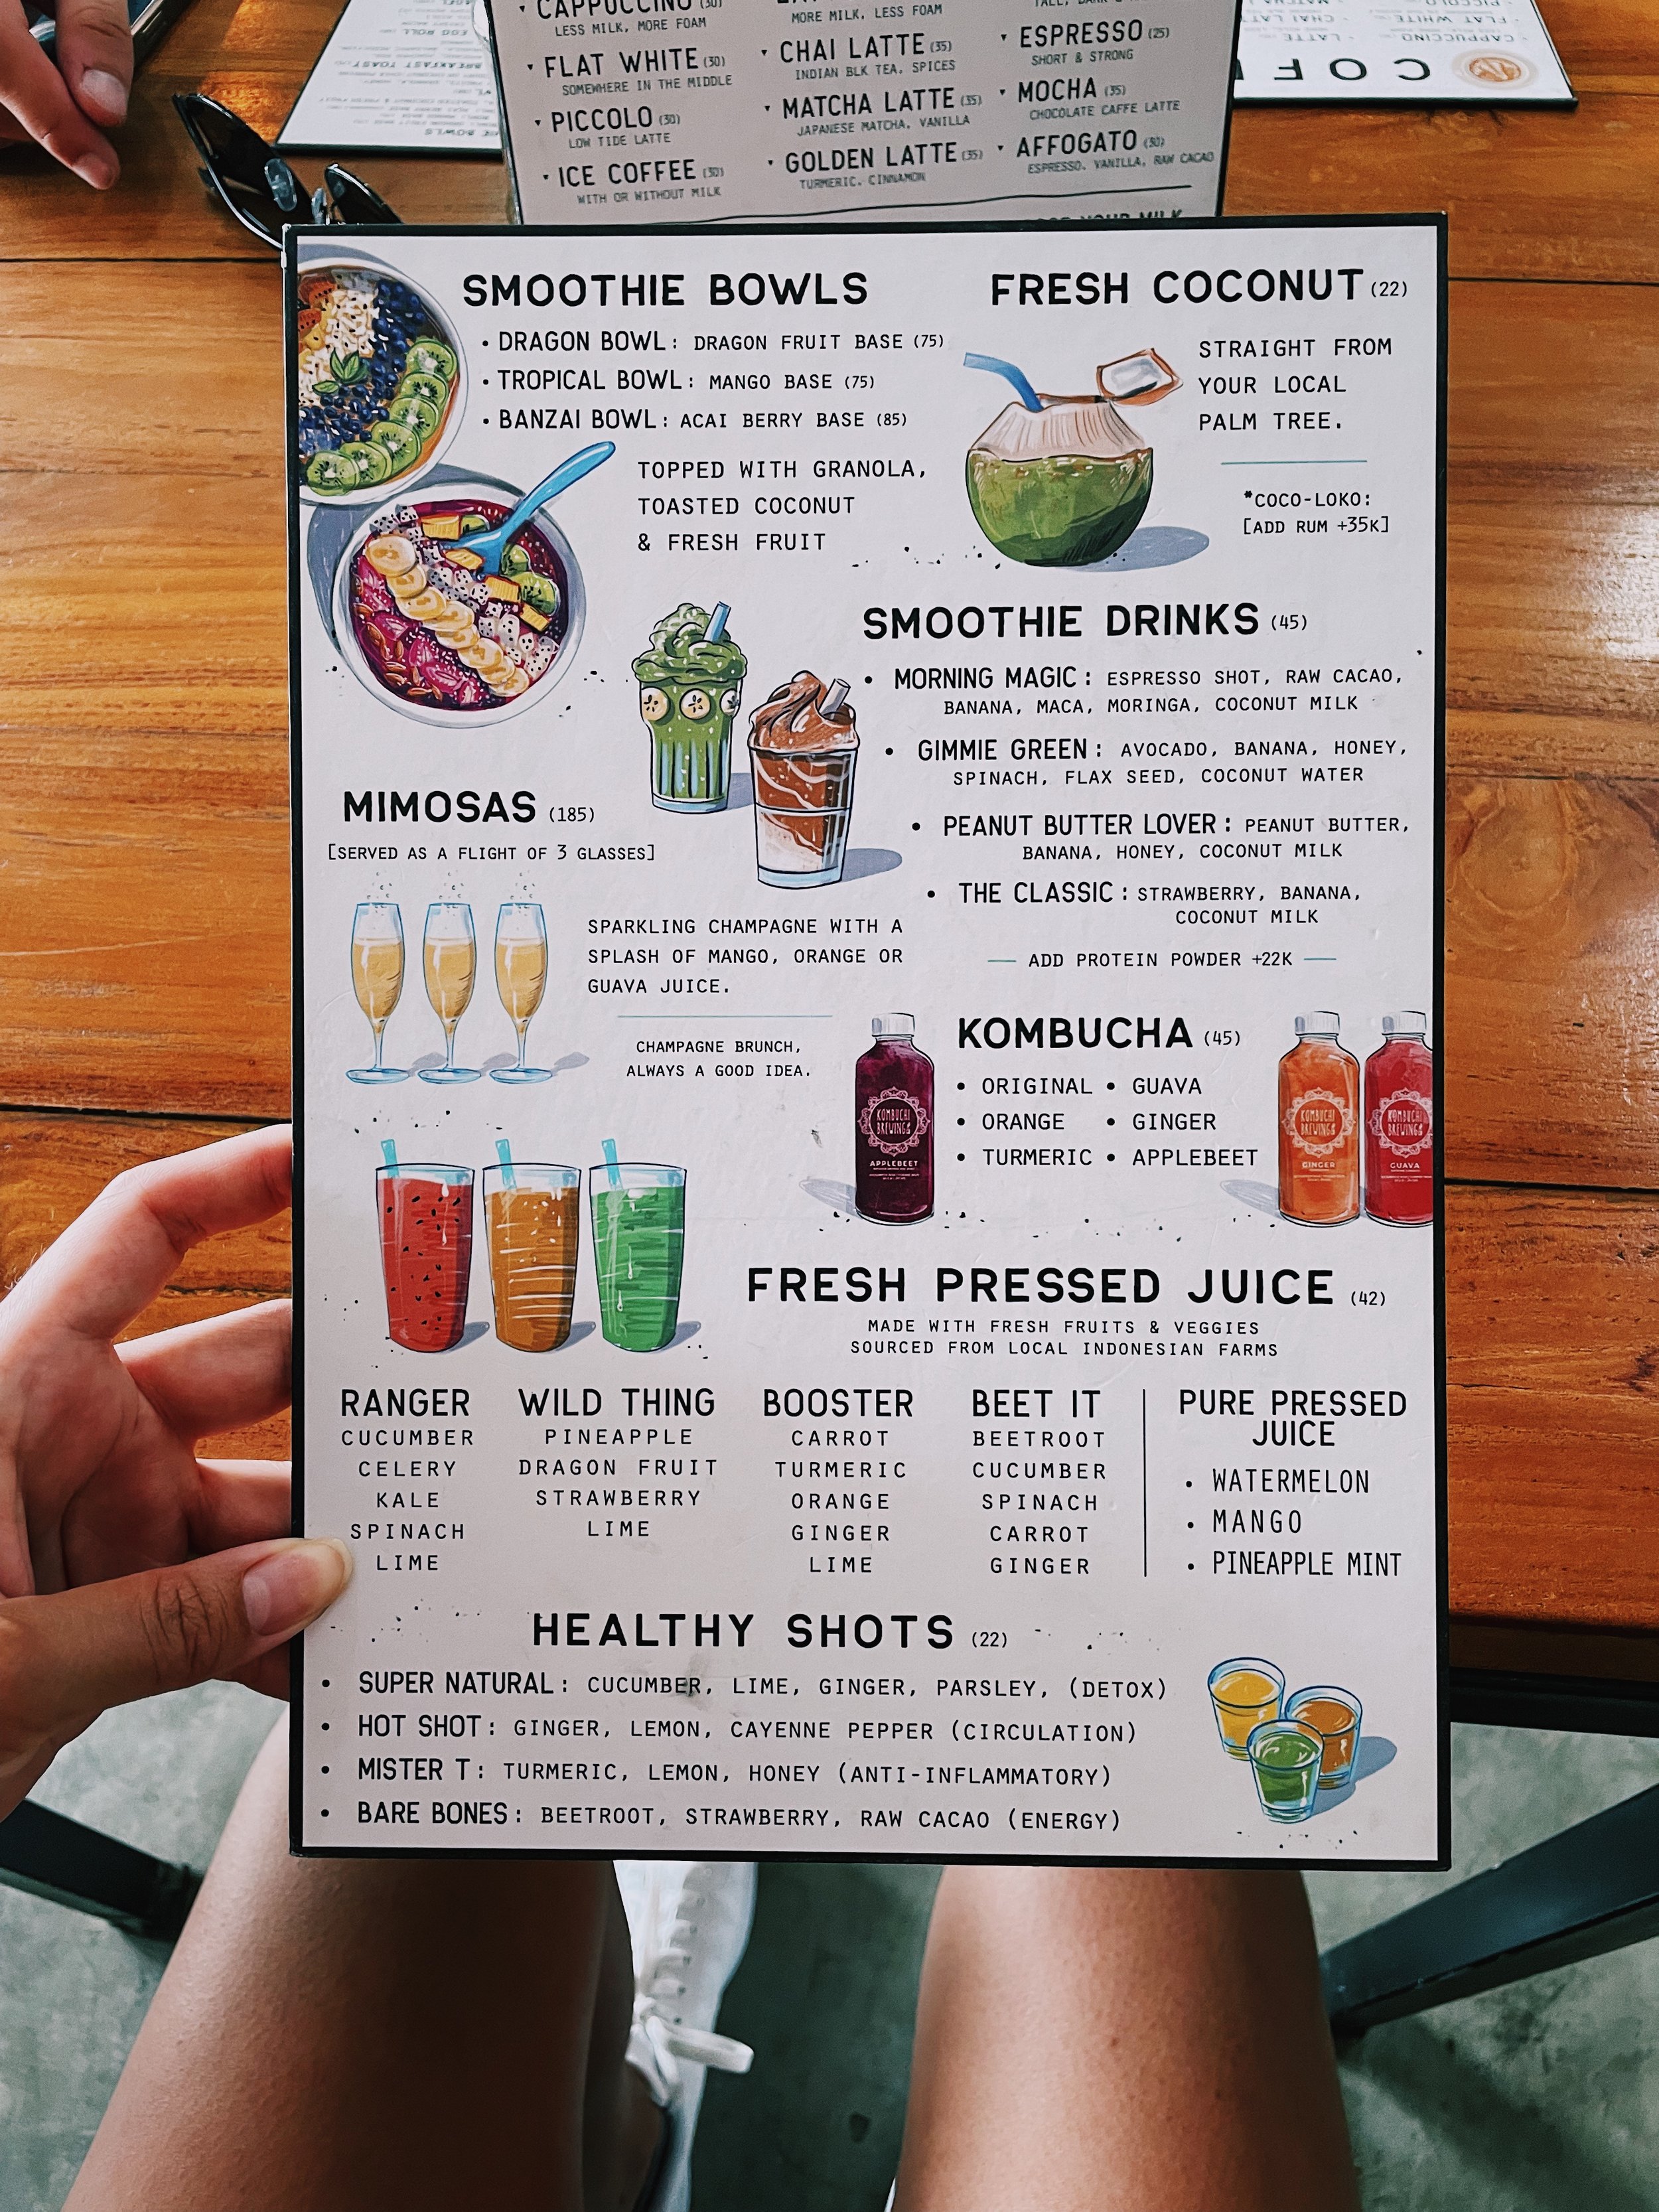 CAPPUCCINO (30)
LESS MILK, MORE FOAM
FLAT WHITE (30)
SOMEWHERE IN THE MIDDLE
PICCOLO (30)
LOW TIDE LATTE
ICE COFFEE (30)
WITH OR WITHOUT MILK
MORE MILK, LESS FOAM
CHAI LATTE (35)
INDIAN BLK TEA, SPICES
MATCHA LATTE (35)
JAPANESE MATCHA, VANILLA
GOLDEN LATTE (35)
TURMERIC, CINNAMON
ESPRESSO (25)
SHORT & STRONG
MOCHA (35)
CHOCOLATE CAFFE LATTE
AFFOGATO (30)
ESPRESSO, VANILLA, RAW CACAO
YOUR MILK
CAPPUCCINO
FLAT WHITE
PICCOLO
LATTE
CHAI LATTE
BREAKFAST TOAST
EGG ROLL
BOWLS
SMOOTHIE BOWLS
• DRAGON BOWL: DRAGON FRUIT BASE (75)
• TROPICAL BOWL: MANGO BASE (75)
• BANZAI BOWL: ACAI BERRY BASE (85)
TOPPED WITH GRANOLA,
TOASTED COCONUT
& FRESH FRUIT
FRESH COCONUT (22)
STRAIGHT FROM
YOUR LOCAL
PALM TREE.
*COCO-LOKO:
[ADD RUM +35K]
SMOOTHIE DRINKS (45)
• MORNING MAGIC: ESPRESSO SHOT, RAW CACAO,
BANANA, MACA, MORINGA, COCONUT MILK
• GIMMIE GREEN: AVOCADO, BANANA, HONEY,
SPINACH, FLAX SEED, COCONUT WATER
• PEANUT BUTTER LOVER: PEANUT BUTTER,
BANANA, HONEY, COCONUT MILK
• THE CLASSIC: STRAWBERRY, BANANA,
COCONUT MILK
ADD PROTEIN POWDER +22K
MIMOSAS (185)
[SERVED AS A FLIGHT OF 3 GLASSES]
SPARKLING CHAMPAGNE WITH A
SPLASH OF MANGO, ORANGE OR
GUAVA JUICE.
CHAMPAGNE BRUNCH,
ALWAYS A GOOD IDEA.
KOMBUCHA (45)
• ORIGINAL • GUAVA
• ORANGE • GINGER
• TURMERIC • APPLEBEET
KOMBUCHI
BREWING
APPLEBEET
KOMBUCHI
BREWING
GINGER
KOMBUCHI
BREWING
GUAVA
FRESH PRESSED JUICE (42)
MADE WITH FRESH FRUITS & VEGGIES
SOURCED FROM LOCAL INDONESIAN FARMS
RANGER
CUCUMBER
CELERY
KALE
SPINACH
LIME
WILD THING
PINEAPPLE
DRAGON FRUIT
STRAWBERRY
LIME
BOOSTER
CARROT
TURMERIC
ORANGE
GINGER
LIME
BEET IT
BEETROOT
CUCUMBER
SPINACH
CARROT
GINGER
PURE PRESSED
JUICE
• WATERMELON
• MANGO
• PINEAPPLE MINT
HEALTHY SHOTS (22)
• SUPER NATURAL: CUCUMBER, LIME, GINGER, PARSLEY, (DETOX)
• HOT SHOT: GINGER, LEMON, CAYENNE PEPPER (CIRCULATION)
• MISTER T: TURMERIC, LEMON, HONEY (ANTI-INFLAMMATORY)
• BARE BONES: BEETROOT, STRAWBERRY, RAW CACAO (ENERGY)